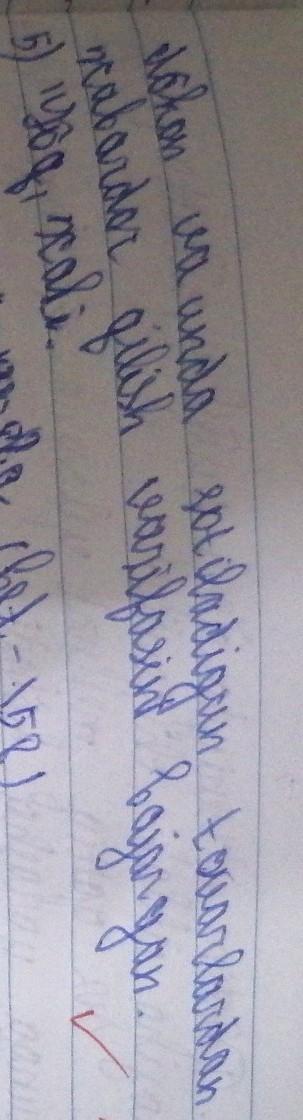 do'kon va unda sotiladigan tovarlardan
xabardor qilish vazifasini bajargan.
5) "Yo'q, xali.
(bet - 158)